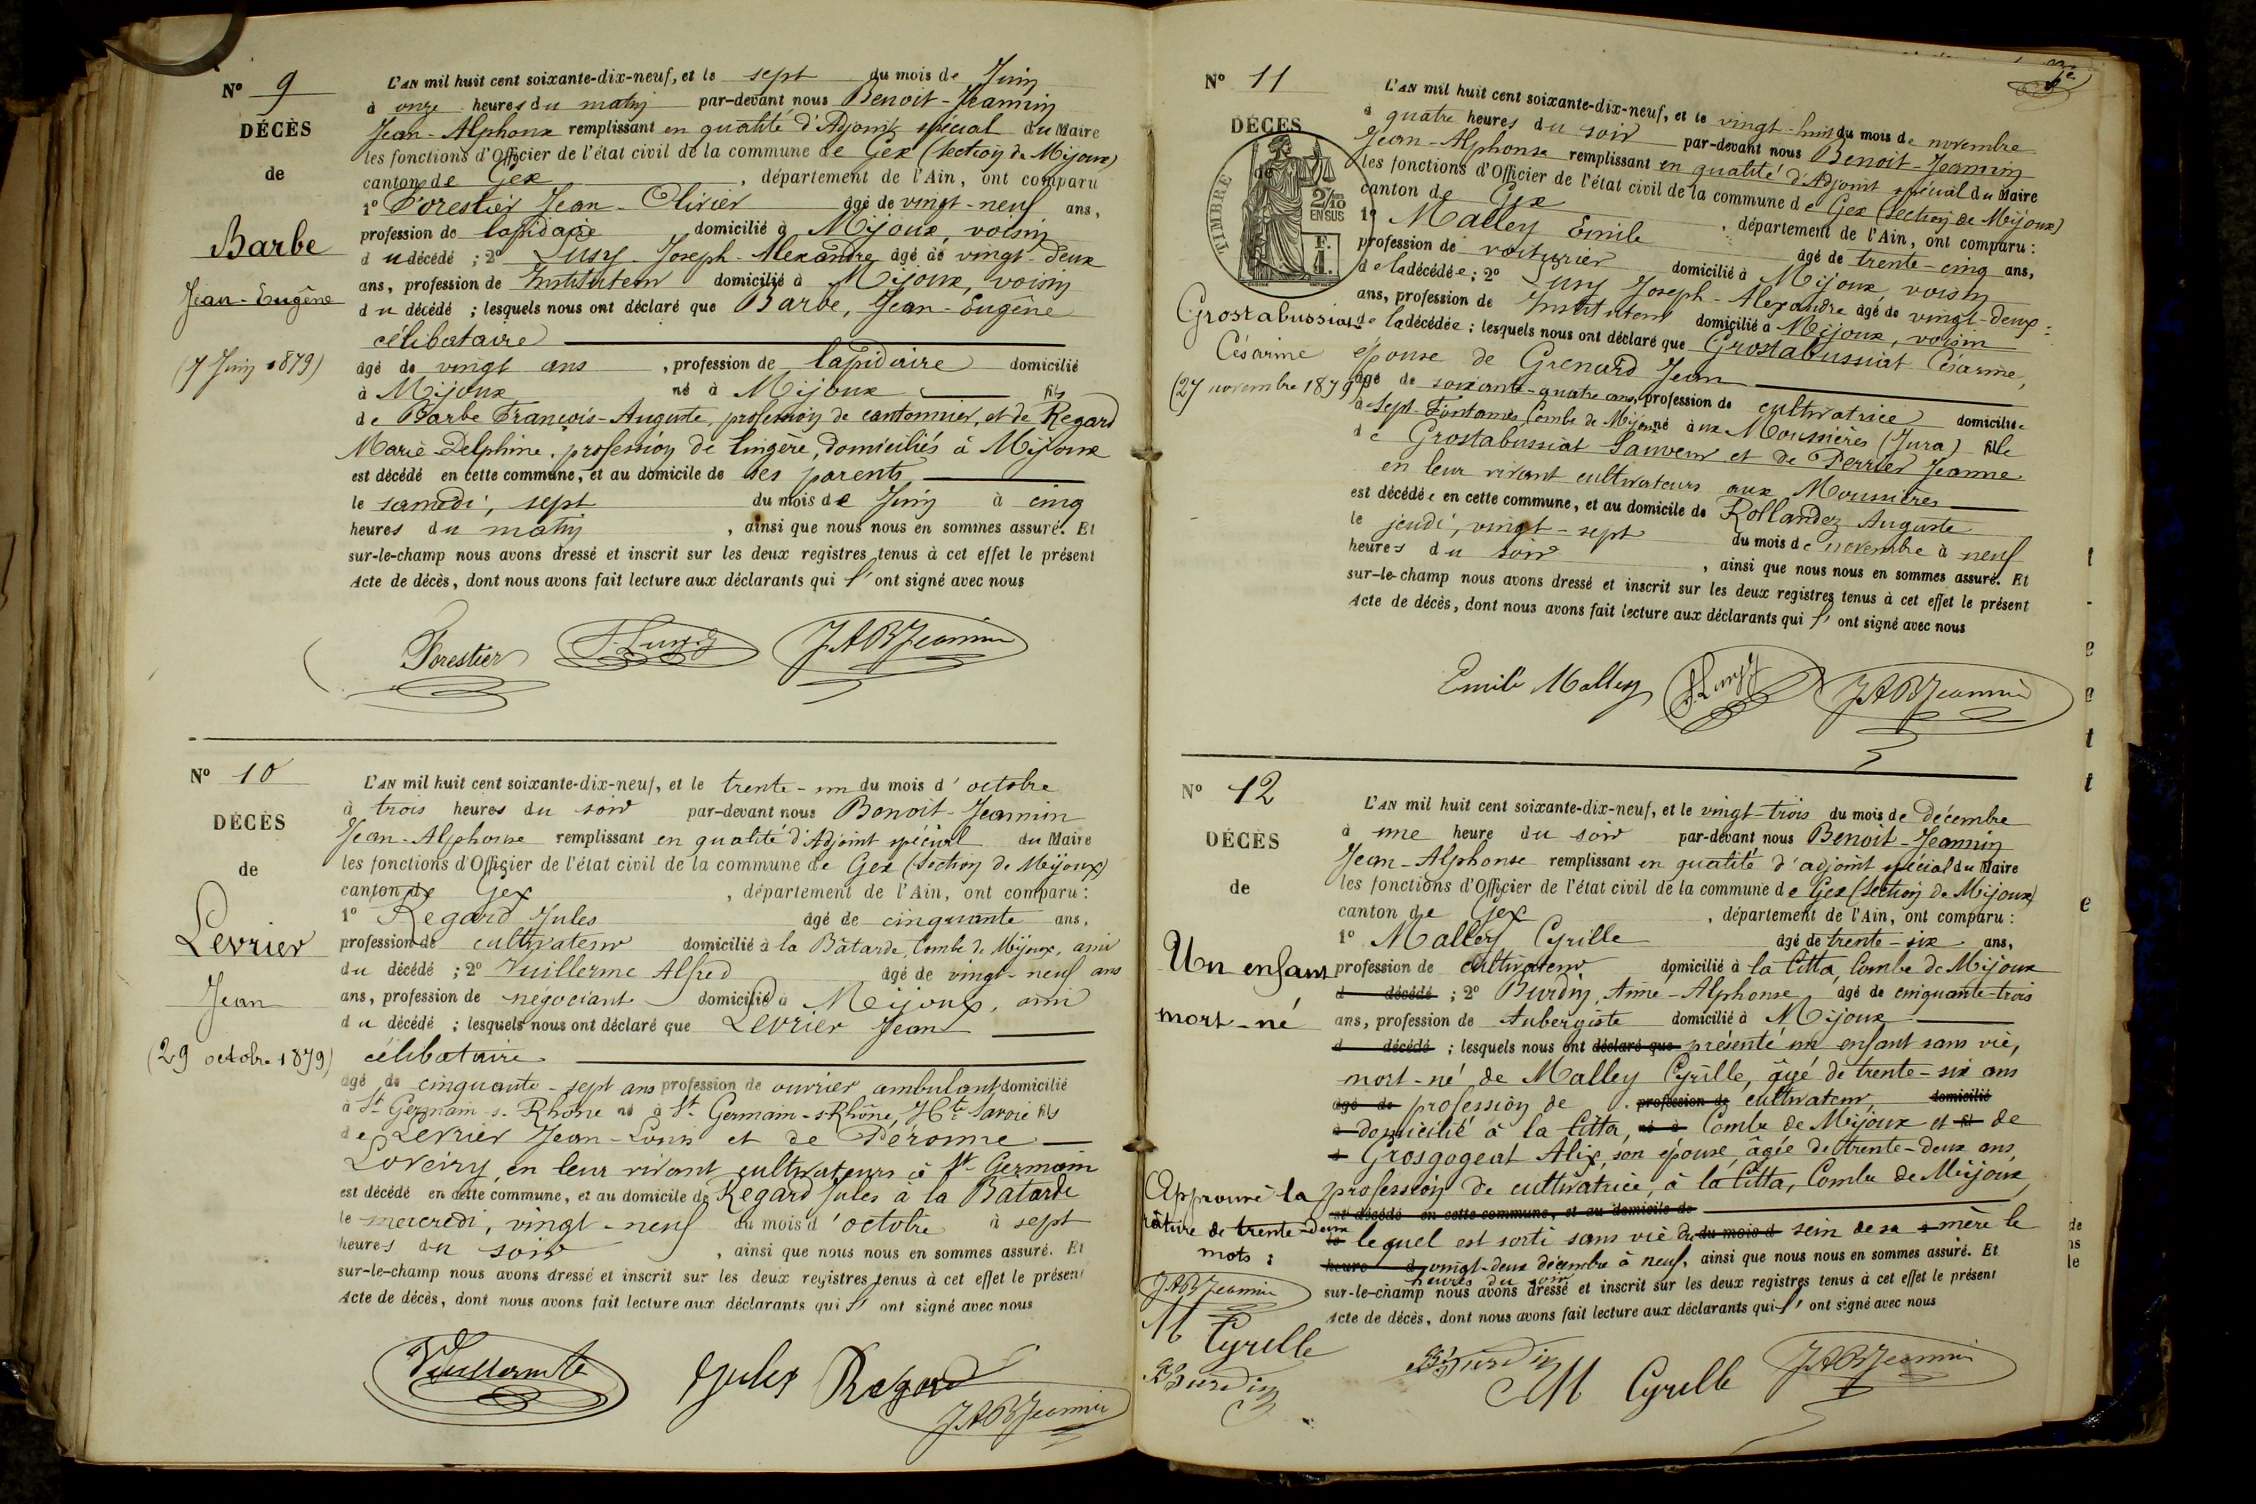 N° 9
DÉCÈS
de
Barbe
Jean-Eugène
(7 Juin 1879)
L'AN mil huit cent soixante-dix-neuf, et le sept du mois de Juin
à onze heures du matin par-devant nous Benoit-Jeannin
Jean-Alphonse remplissant en qualité d'Adjoint spécial du Maire
les fonctions d'Officier de l'état civil de la commune de Gex (section de Mijoux)
canton de Gex, département de l'Ain, ont comparu
1° Forestier Jean-Olivier âgé de vingt-neuf ans,
profession de lapidaire domicilié à Mijoux, voisin
du décédé ; 2° Lusy Joseph-Alexandre âgé de vingt-deux
ans, profession de Instituteur domicilié à Mijoux, voisin
du décédé ; lesquels nous ont déclaré que Barbe, Jean-Eugène
célibataire
âgé de vingt ans, profession de lapidaire domicilié
à Mijoux né à Mijoux fils
de Barbe François-Auguste, profession de cantonnier, et de Regard
Marie-Delphine, profession de lingère, domiciliés à Mijoux
est décédé en cette commune, et au domicile de ses parents
le samedi, sept du mois de Juin à cinq
heures du matin, ainsi que nous nous en sommes assuré. Et
sur-le-champ nous avons dressé et inscrit sur les deux registres tenus à cet effet le présent
Acte de décès, dont nous avons fait lecture aux déclarants qui l'ont signé avec nous
Forestier Lusy JABJeannin
N° 10
DÉCÈS
de
Levrier
Jean
(29 octobre 1879)
L'AN mil huit cent soixante-dix-neuf, et le trente-un du mois d'octobre
à trois heures du soir par-devant nous Benoit-Jeannin
Jean-Alphonse remplissant en qualité d'Adjoint spécial du Maire
les fonctions d'Officier de l'état civil de la commune de Gex (section de Mijoux)
canton de Gex, département de l'Ain, ont comparu :
1° Regard Jules âgé de cinquante ans,
profession de cultivateur domicilié à la Bâtarde, Combe de Mijoux, ami
du décédé ; 2° Vuillerme Alfred âgé de vingt-neuf ans
ans, profession de négociant domicilié à Mijoux, ami
du décédé ; lesquels nous ont déclaré que Levrier Jean
célibataire
âgé de cinquante-sept ans profession de ouvrier ambulant domicilié
à St Germain-s-Rhône né à St Germain-s-Rhône, Hte Savoie fils
de Levrier Jean-Louis et de Péronne
Loveiry, en leur vivant cultivateurs à St Germain
est décédé en cette commune, et au domicile de Regard Jules à la Bâtarde
le mercredi, vingt-neuf du mois d'octobre à sept
heures du soir, ainsi que nous nous en sommes assuré. Et
sur-le-champ nous avons dressé et inscrit sur les deux registres tenus à cet effet le présent
Acte de décès, dont nous avons fait lecture aux déclarants qui l'ont signé avec nous
Vuillerme Jules Regard
JABJeannin
N° 11
DÉCÈS
de
TIMBRE
2/10 EN SUS
Grostabussiat
Césarine
(27 novembre 1879)
L'AN mil huit cent soixante-dix-neuf, et le vingt-huit du mois de novembre
à quatre heures du soir par-devant nous Benoit-Jeannin
Jean-Alphonse remplissant en qualité d'Adjoint spécial du Maire
les fonctions d'Officier de l'état civil de la commune de Gex (section de Mijoux)
canton de Gex, département de l'Ain, ont comparu :
1° Malley Emile âgé de trente-cinq ans,
profession de voiturier domicilié à Mijoux voisin
de la décédée ; 2° Lusy Joseph-Alexandre âgé de vingt-deux
ans, profession de Instituteur domicilié à Mijoux, voisin
de la décédée ; lesquels nous ont déclaré que Grostabussiat Césarine,
épouse de Grenard Jean
âgé de soixante-quatre ans, profession de cultivatrice domiciliée
à Sept-Fontaines Combe de Mijoux né aux Moussières (Jura) fille
de Grostabussiat Sauveur et de Perrier Jeanne
en leur vivant cultivateurs aux Moussières
est décédée en cette commune, et au domicile de Rollandez Auguste
le jeudi, vingt-sept du mois de novembre à neuf
heures du soir, ainsi que nous nous en sommes assuré. Et
sur-le-champ nous avons dressé et inscrit sur les deux registres tenus à cet effet le présent
Acte de décès, dont nous avons fait lecture aux déclarants qui l'ont signé avec nous
Emile Malley Lusy JABJeannin
N° 12
DÉCÈS
de
Un enfant
mort-né
L'AN mil huit cent soixante-dix-neuf, et le vingt-trois du mois de décembre
à une heure du soir par-devant nous Benoit-Jeannin
Jean-Alphonse remplissant en qualité d'adjoint spécial du Maire
les fonctions d'Officier de l'état civil de la commune de Gex (section de Mijoux)
canton de Gex, département de l'Ain, ont comparu :
1° Malley Cyrille âgé de trente-six ans,
profession de cultivateur domicilié à la Citta, Combe de Mijoux
d décédé ; 2° Burdin, Aimé-Alphonse âgé de cinquante-trois
ans, profession de Aubergiste domicilié à Mijoux
d décédé ; lesquels nous ont déclaré que présenté un enfant sans vie,
mort-né de Malley Cyrille, âgé de trente-six ans
âgé de profession de profession de cultivateur domicilié
à domicilié à la Citta, né à Combe de Mijoux et fil de
d Grosgogeat Alix, son épouse, âgée de trente-deux ans,
profession de cultivatrice, à la Citta, Combe de Mijoux,
est décédé en cette commune, et au domicile de
le lequel est sorti sans vie du du mois d sein de sa à mère le
heure d vingt-deux décembre à neuf, ainsi que nous nous en sommes assuré. Et
heures du soir
sur-le-champ nous avons dressé et inscrit sur les deux registres tenus à cet effet le présent
Acte de décès, dont nous avons fait lecture aux déclarants qui l'ont signé avec nous
Approuvé la
rature de trente-deux
mots :
JABJeannin
M Cyrille
Burdin
Burdin M Cyrille JABJeannin